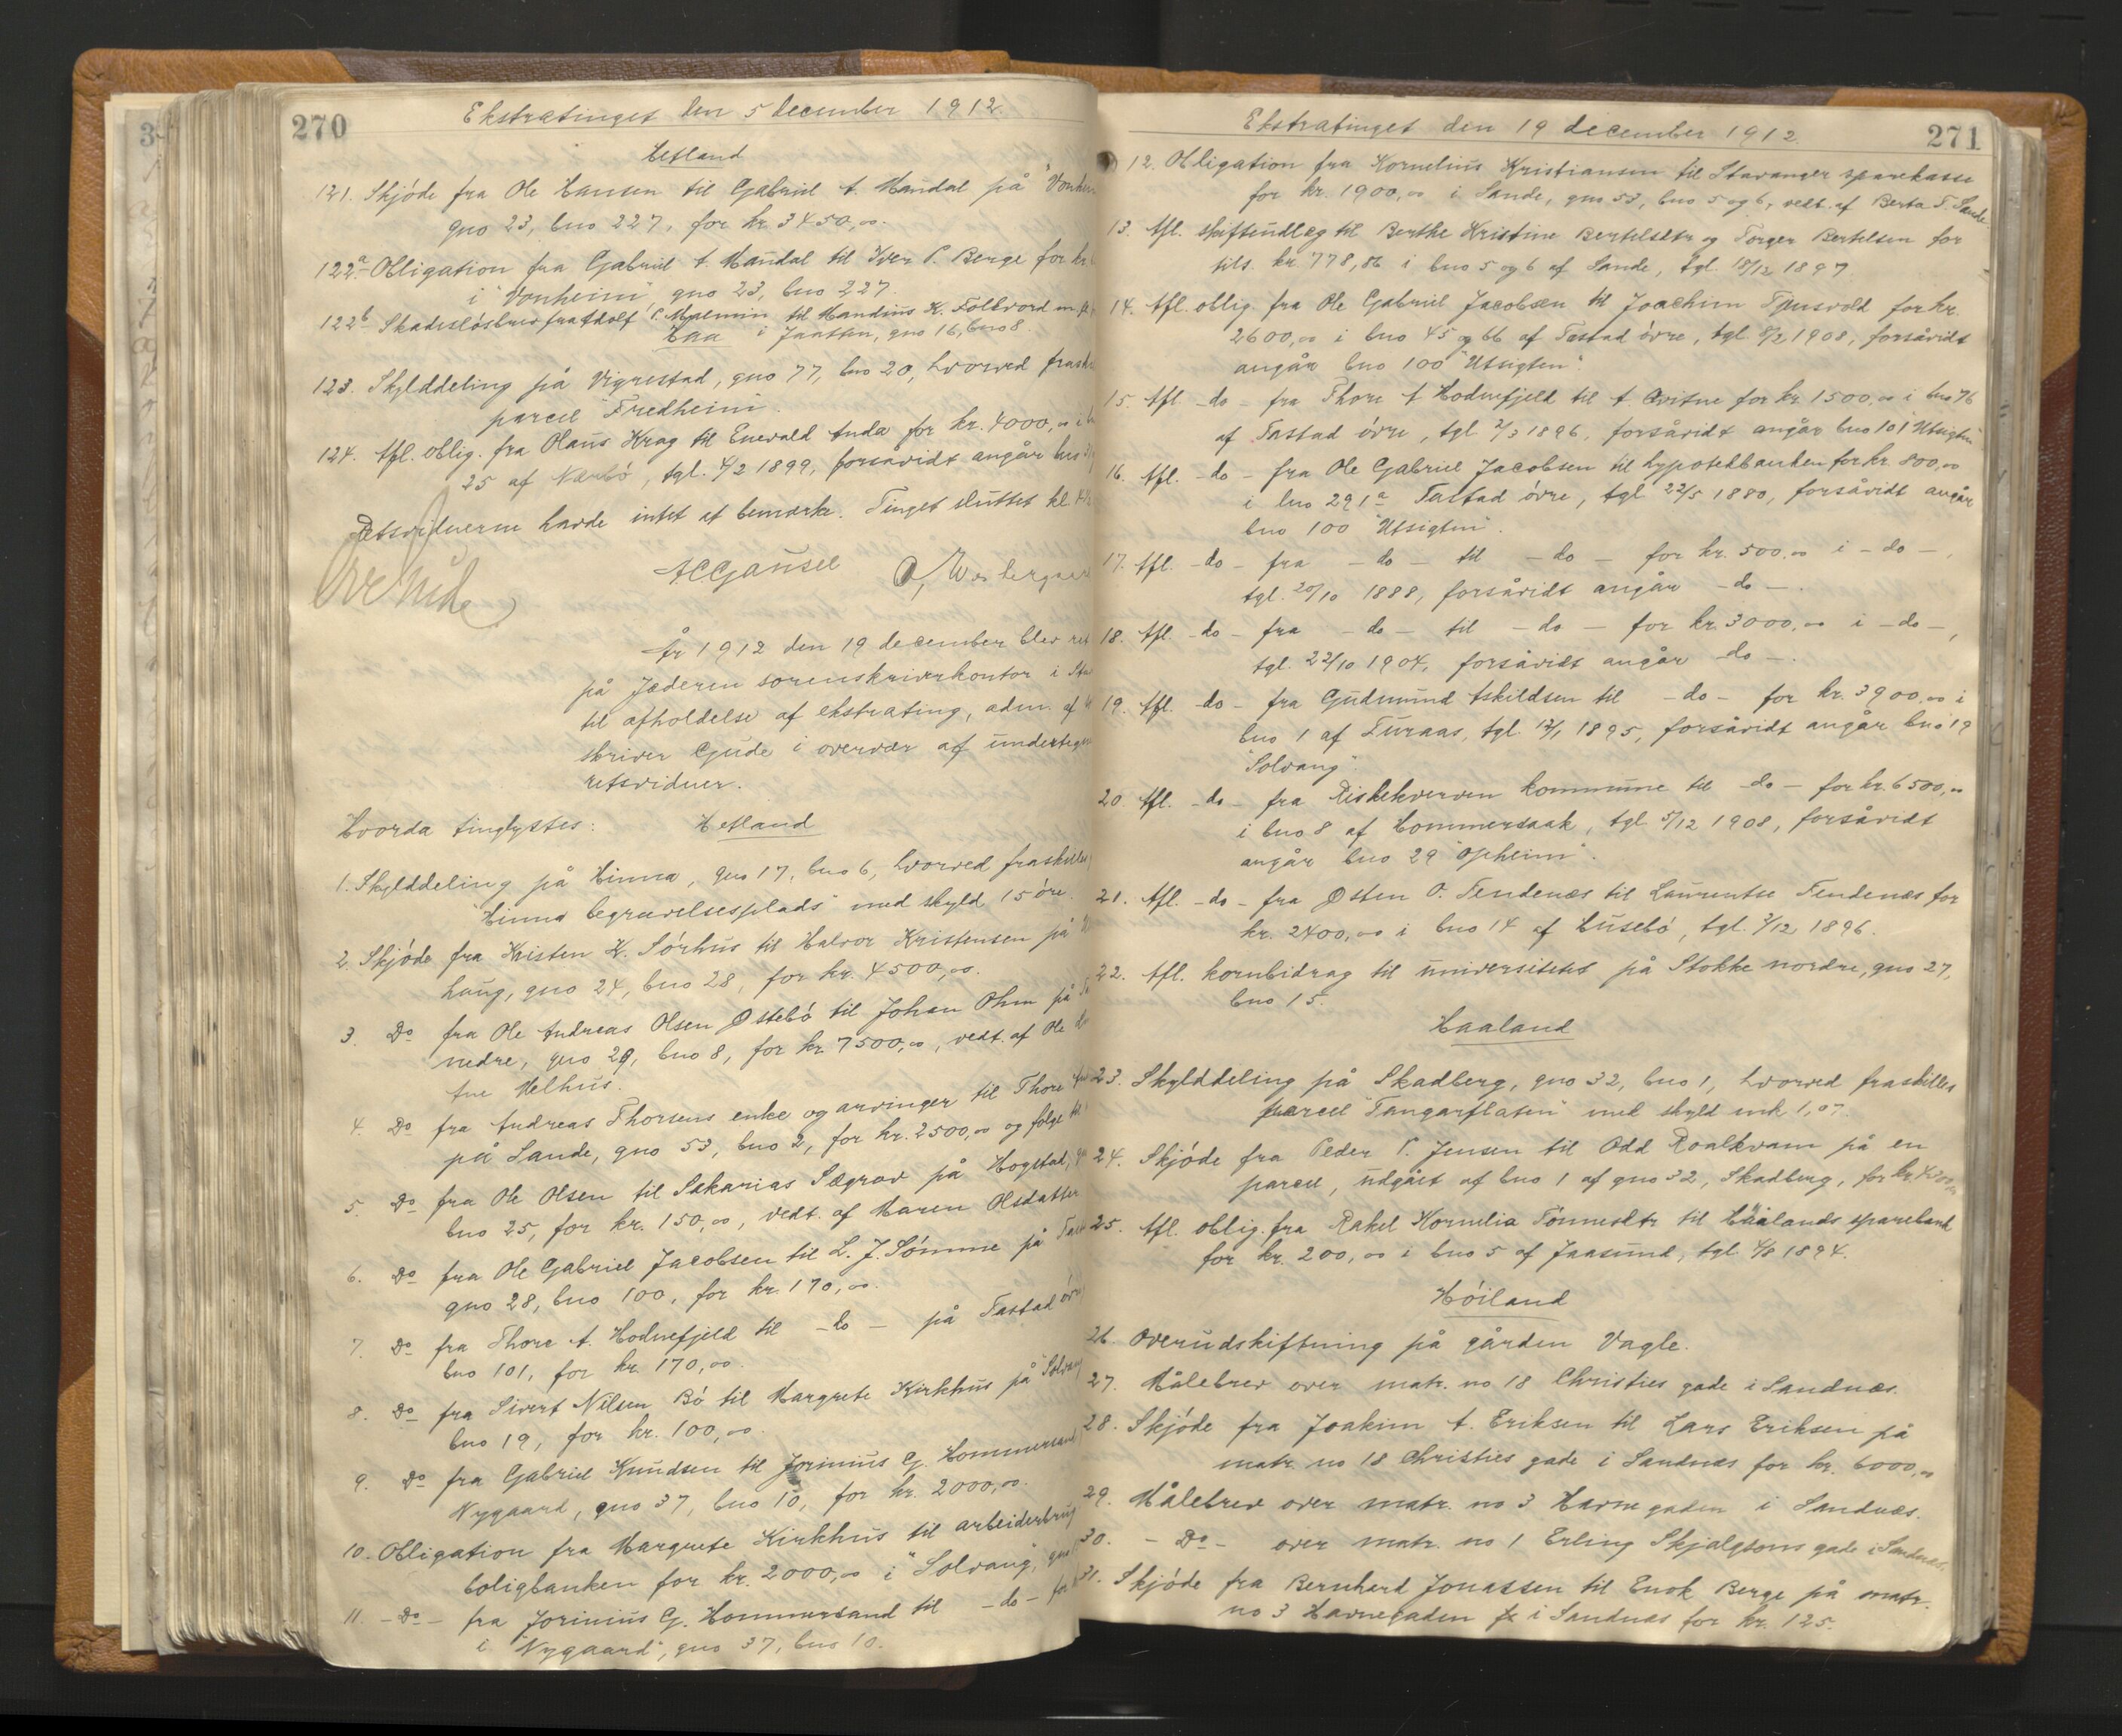 270
Ekstratinget den 5 december 1912.
Hetland
121. Skjöde fra Ole Hansen til Gabriel A. Mandal på "Vonheim
gno 23, bno 227, for kr. 3450,00.
122a Obligation fra Gabriel A. Mandal til Iver P. Berge for kr.
i "Vonheim", gno 23, bno 227.
122b Skadeslösbrev fra Adolf P. Malmin til Mandius K. Folkvord
Haa i Jaatun, gno 16, bno 8
123. Skylddeling på Vigrestad, gno 77, bno 20, hvorved
parcel "Fredheim".
124. Afl. oblig. fra Olaus Krag til Enevald Auda for kr. 4000,00 i
25 af Nærbö, tgl. 4/2 1899, forsåvidt angår bno
Retsvidnerne havde intet at bemærke. Tinget sluttet kl.
Ove Gude
A C Gausel
År 1912 den 19 december blev ret
på Jæderen sorenskriverkontor i
til afholdelse af ekstrating, adm. af
skriver Gude i overvær af
retsvidner.
Hvorda tinglystes:
Hetland
1. Skylddeling på Hinna, gno 17, bno 6, hvorved fraskilles
"Hinna begravelsesplads" med skyld 15 öre.
2. Skjöde fra Kristen K. Sörhus til Halvor Kristensen på
haug, gno 24, bno 28, for kr. 4500,00.
3. Do fra Ole Andreas Olsen Østebö til Johan Ohm på
nedre, gno 29, bno 8, for kr. 7500,00, vedt. af Ole
Ane Melhus.
4. Do fra Andreas Thorsens enke og arvinger til Thore
på Sande, gno 53, bno 2, for kr. 2500,00 og folge
5. Do fra Ole Olsen til Sakarias Sægrov på Hogstad,
bno 25, for kr. 150,00, vedt. af Maren Olsdatter
6. Do fra Ole Gabriel Jacobsen til L. J. Sömme på
gno 28, bno 100, for kr. 170,00.
7. Do fra Thore A. Hodnefjeld til -do- på Tastad övre
bno 101, for kr. 170,00.
8. Do fra Sivert Nilsen Bö til Margrete Kirkhus på "Solvang
bno 19, for kr. 100,00.
9. Do fra Gabriel Knudsen til Jorinius G. Hommersand
Nygaard, gno 37, bno 10, for kr. 2000,00.
10. Obligation fra Margrete Kirkhus til arbeiderbrug
boligbanken for kr. 2000,00 i "Solvang",
11. -Do- fra Jorinius G. Hommersand til -do- for
i "Nygaard", gno 37, bno 10.
Ekstratinget den 19 december 1912.
271
12. Obligation fra Kornelius Kristiansen til Stavanger sparekasse
for kr. 1900,00 i Sande, gno 53, bno 5 og 6, vedt. af Berta T. Sande.
13. Afl. skifteudlæg til Berthe Kristine Bertelsdtr og Torger Bertelsen for
tils. kr. 778,86 i bno 5 og 6 af Sande, tgl. 18/12 1897.
14. Afl. oblig. fra Ole Gabriel Jacobsen til Joachim Tjensvold for kr.
2600,00 i bno 45 og 66 af Tastad övre, tgl. 8/2 1908, forsåvidt
angår bno 100 "Utsigten".
15. Afl. -do- fra Thore A. Hodnefjeld til A Qvitne for kr. 1500,00 i bno 76
af Tastad övre, tgl. 2/3 1896, forsåvidt angår bno 101 "Utsigten"
16. Afl. -do- fra Ole Gabriel Jacobsen til hypotekbanken for kr. 800,00
i bno 291a Tastad övre, tgl. 22/5 1880, forsåvidt angår
bno 100 "Utsigten".
17. Afl. -do- fra -do- til -do- for kr. 500,00 i -do-,
tgl. 20/10 1888, forsåvidt angår -do-.
18. Afl. -do- fra -do- til -do- for kr. 3000,00 i -do-,
tgl. 22/10 1904, forsåvidt angår -do-.
19. Afl. -do- fra Gudmund Askildsen til -do- for kr. 3900,00 i
bno 1 af Turaas, tgl. 12/1 1895, forsåvidt angår bno 19
"Solvang".
20. Afl. -do- fra Riskekverven kommune til -do- for kr. 6500,00
i bno 8 af Hommersaak, tgl. 5/12 1908, forsåvidt
angår bno 29 "Opheim".
21. Afl. -do- fra Østen O. Tendenæs til Laurentse Tendenæs for
kr. 2400,00 i bno 14 af Husebö, tgl. 2/12 1896.
22. Afl. kornbidrag til universitetet på Stokke nordre, gno 27,
bno 15.
Haaland
23. Skylddeling på Skadberg, gno 32, bno 1, hvorved fraskilles
parcel "Tangarflaten" med skyld mk 1,07.
24. Skjöde fra Peder P. Jensen til Odd Roalkvam på en
parcel, udgået af bno 1 af gno 32, Skadberg, for kr.
25. Afl. oblig. fra Rakel Kornelia Tönnesdtr til Håålands sparebank
for kr. 200,00 i bno 5 af Jaasund, tgl. 4/8 1894.
Höiland
26. Overudskiftning på gården Vagle.
27. Målebrev over matr. no 18 Christies gade i Sandnæs.
28. Skjöde fra Joakim A. Eriksen til Lars Eriksen på
matr. no 18 Christies gade i Sandnæs for kr. 6000,00
29. Målebrev over matr. no 3 Havnegaden i Sandnæs.
30. -Do- over matr. no 1 Erling Skjalgsons gade i Sandnæs.
31. Skjöde fra Bernhard Jonassen til Enok Berge på matr.
no 3 Havnegaden i Sandnæs for kr. 125.